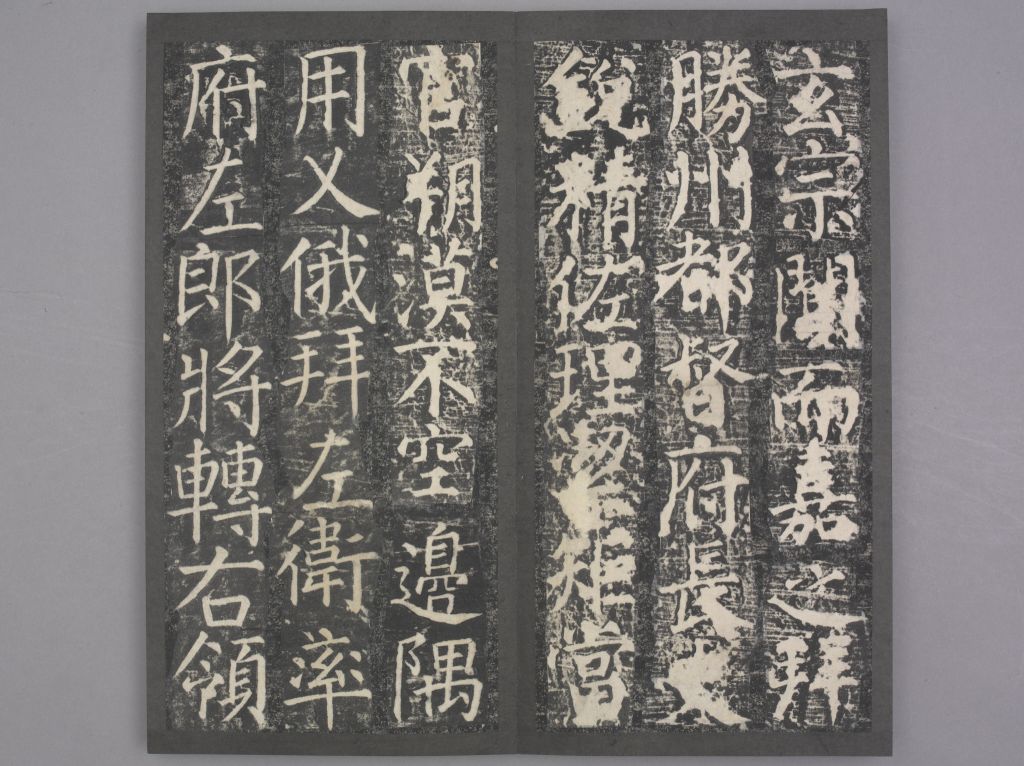 玄宗聞而嘉之拜
勝州都督府長史
銳精佐理潔矩當
官朔漠不空邊隅
用乂俄拜左衛率
府左郎將轉右領